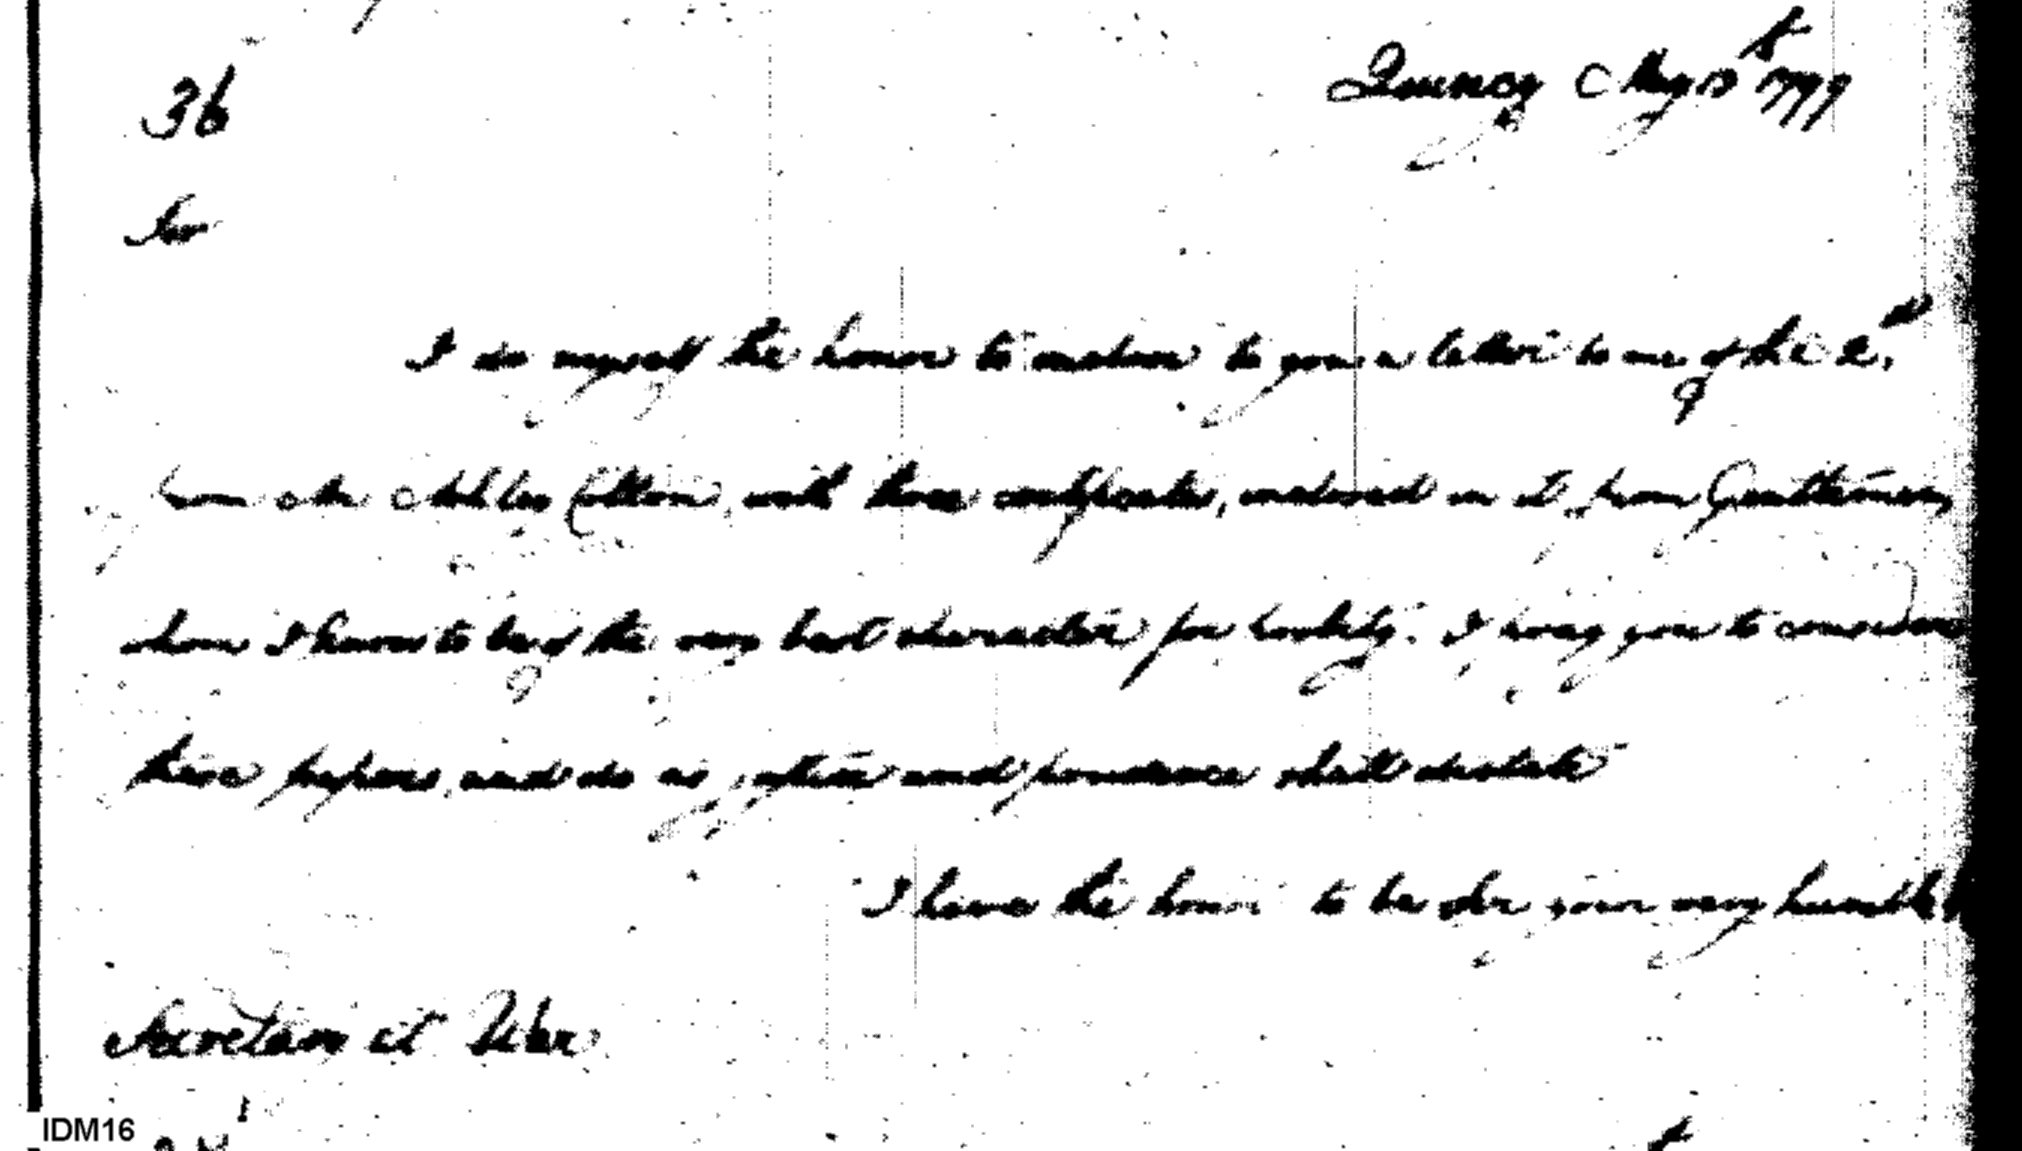 36
Quincy May 13th 1799
Sir
I do myself the honor to inclose to you a letter to me of the 2d,
from Mr Cotton, with three certificates, inclosed in it from Gentlemen
whom I know to be of the very best character for probity. I pray you to consider
these papers and do as justice and prudence shall dictate
I have the honor to be Sir your very humble
Secretary at War
IDM16